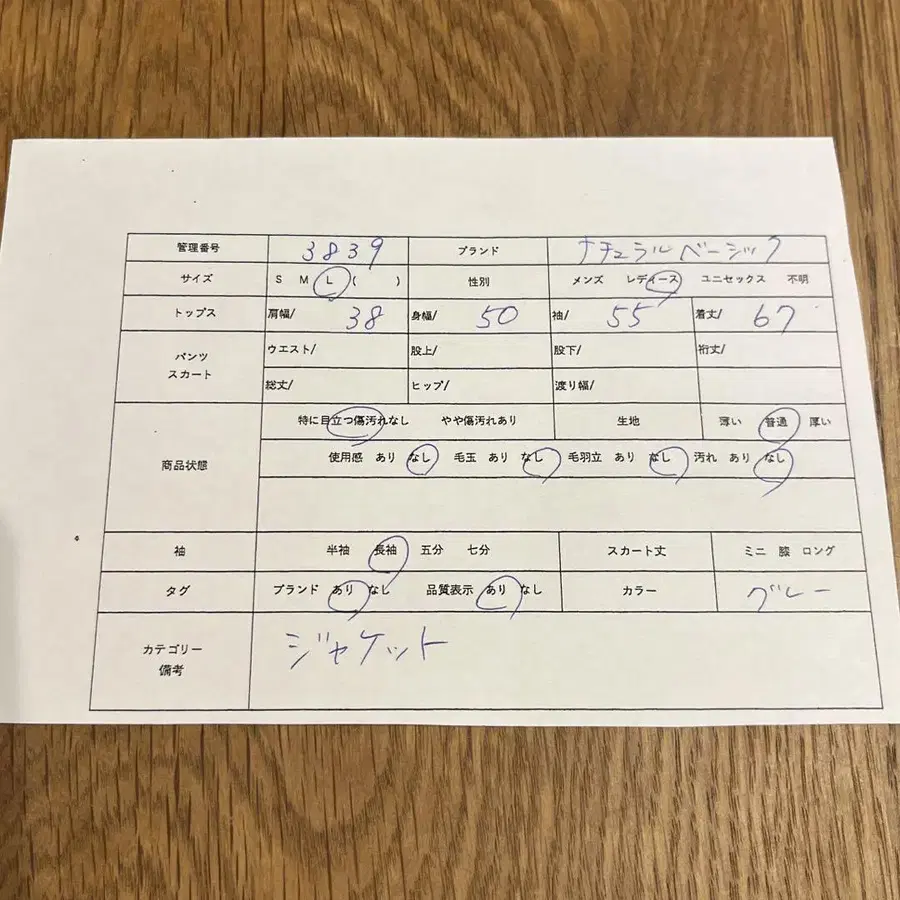 管理番号 3839 ブランド ナチュラルベーシック
サイズ S M L ( ) 性別 メンズ レディース ユニセックス 不明
トップス 肩幅/ 38 身幅/ 50 袖/ 55 着丈/ 67
パンツ スカート ウエスト/ 股上/ 股下/ 裄丈/
総丈/ ヒップ/ 渡り幅/
特に目立つ傷汚れなし やや傷汚れあり 生地 薄い 普通 厚い
商品状態 使用感 あり なし 毛玉 あり なし 毛羽立 あり なし 汚れ あり なし
袖 半袖 長袖 五分 七分 スカート丈 ミニ 膝 ロング
タグ ブランド あり なし 品質表示 あり なし カラー グレー
カテゴリー 備考 ジャケット